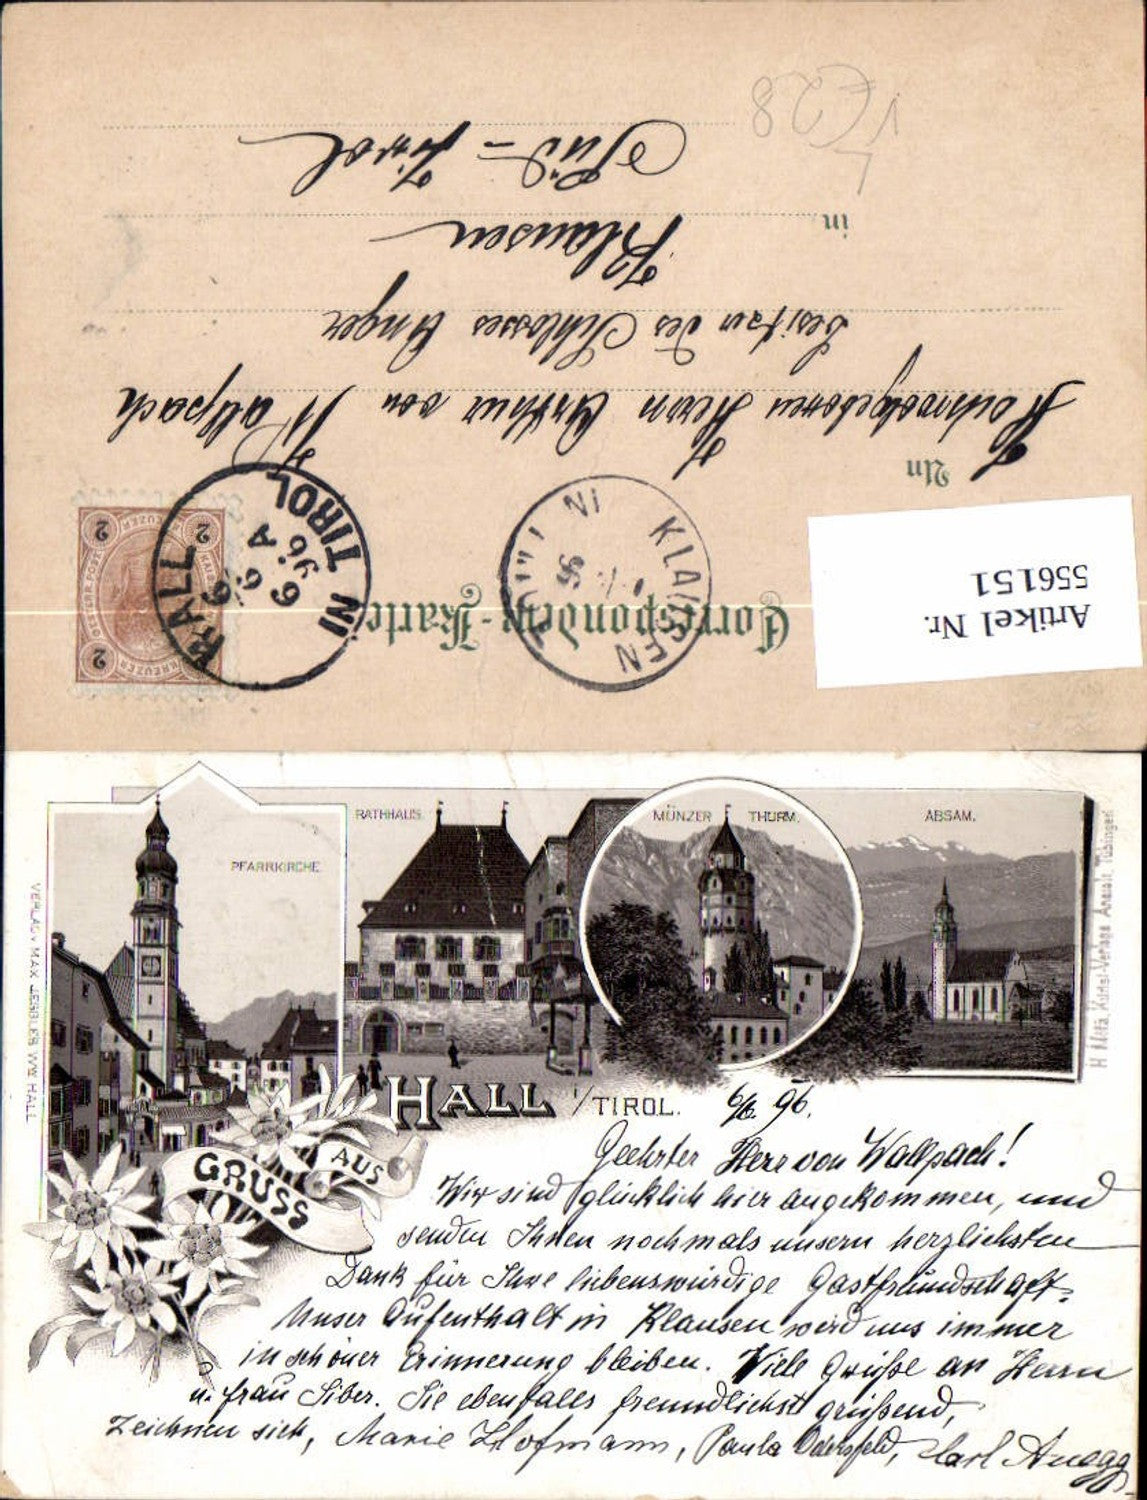 Correspondenz-Karte
Artikel Nr.
556151
KLAUSEN
IN
96
HALL
IN TIROL
6 6
96
2 KREUZER 2
2
An
Hochwolgeboren Herrn Arthur von Wallpach
Besitzer des Schlosses Anger
in Klausen
Süd-Tirol
€28
PFARRKIRCHE
RATHHAUS.
MÜNZER THURM.
ABSAM.
VERLAG v. MAX SEIBLES WW HALL
GRUSS AUS
HALL i/TIROL. 6/6. 96.
Geehrter Herr von Wallpach!
Wir sind glücklich hier angekommen, und
senden Ihnen nochmals unsern herzlichsten
Dank für Ihre liebenswürdige Gastfreundschaft.
Unser Aufenthalt in Klausen wird uns immer
in schöner Erinnerung bleiben. Viele Grüße an Herrn
u. Frau Siber. Sie ebenfalls freundlichst grüßend,
Zeichnen sich, Marie Hofmann, Paula Odersfeld, Carl Anegg